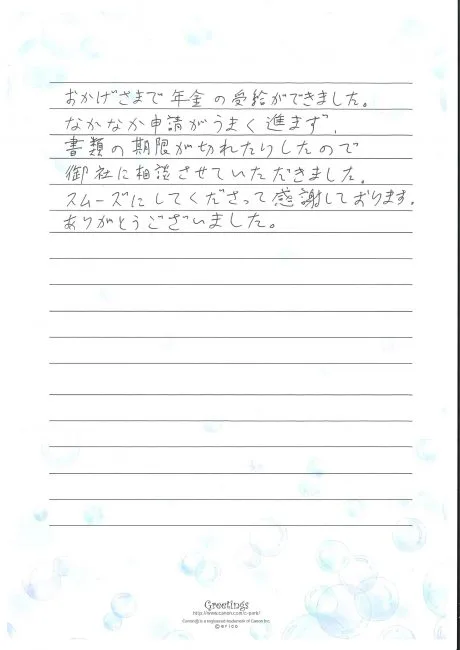 おかげさまで年金の受給ができました。
なかなか申請がうまく進まず、
書類の期限が切れたりしたので
御社に相談させていただきました。
スムーズにしてくださって感謝しております。
ありがとうございました。
Greetings
http://www.canon.com/c-park/
Canon@is a registered trademark of Canon Inc.
©erico